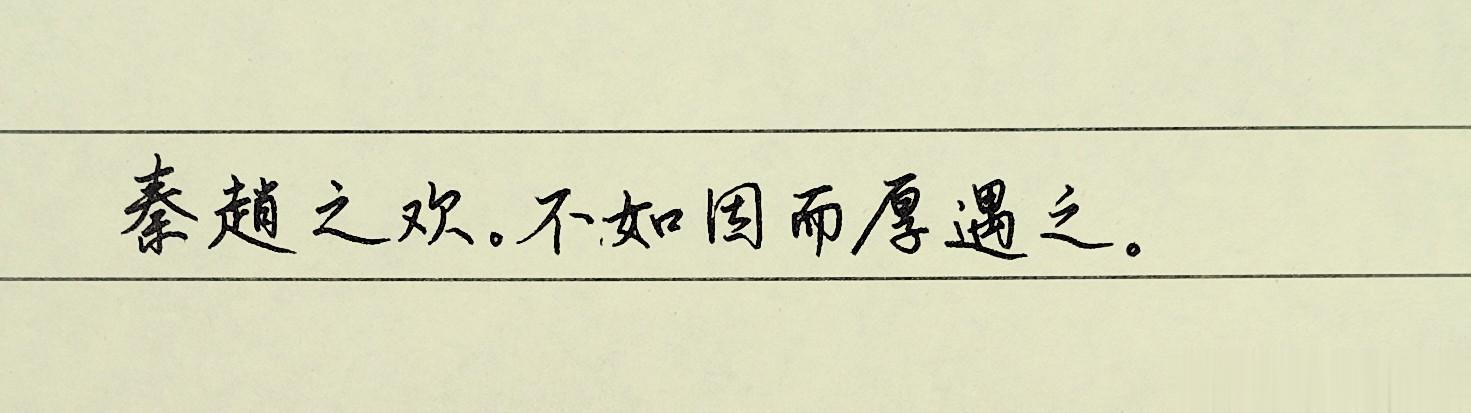 秦趙之欢。不如因而厚遇之。